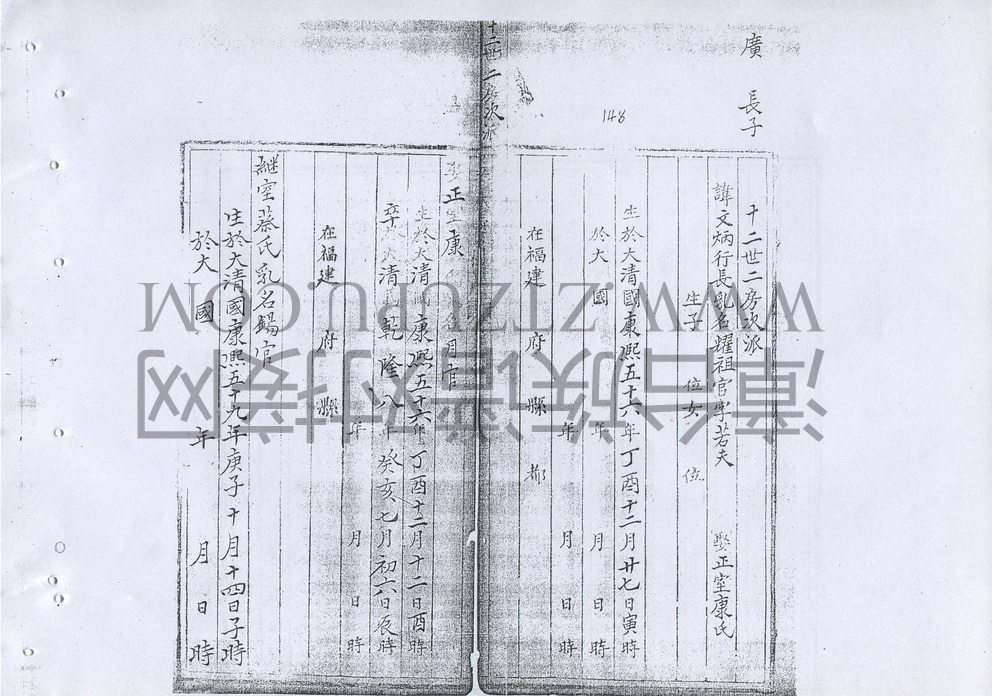 廣 長子
148
十二世二房次派
諱文炳行長乳名耀祖官字若夫 娶正室康氏
生子 位女 位
生於大清國康熙五十六年丁酉十二月廿七日寅時
於大 國 年 月 日 時
年 月 日 時
在福建 府 縣 都
十二世二房次派
正室康 月官
生於大清國康熙五十六年丁酉十二月十二日酉時
卒於大清國乾隆八年癸亥七月初六日辰時
年 月 日 時
在福建 府 縣
繼室蔡氏乳名錫官
生於大清國康熙五十九年庚子十月十四日子時
於大 國 年 月 日 時
WWW.ZTZUPU.COM
漳台族譜对接网